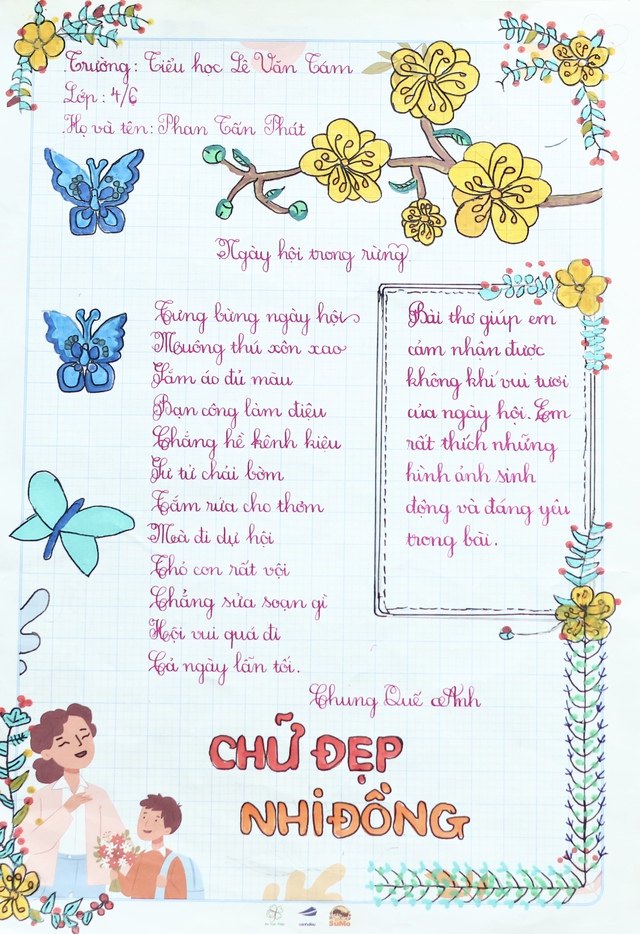 Trường: Tiểu học Lê Văn Tám
Lớp: 4/6
Họ và tên: Phan Tấn Phát
Ngày hội trong rừng
Tưng bừng ngày hội
Muông thú xôn xao
Sắm áo đủ màu
Bạn công làm điệu
Chẳng hề kênh kiệu
Sư tử chải bờm
Tắm rửa cho thơm
Mà đi dự hội
Thỏ con rất vội
Chẳng sửa soạn gì
Hội vui quá đi
Cả ngày lẫn tối.
Chung Quế Anh
Bài thơ giúp em
cảm nhận được
không khí vui tươi
của ngày hội. Em
rất thích những
hình ảnh sinh
động và đáng yêu
trong bài.
CHỮ ĐẸP
NHI ĐỒNG
SuMo